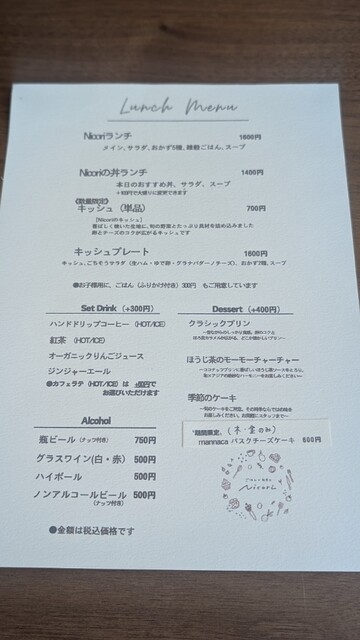 Lunch Menu
Nicoriランチ 1600円
メイン、サラダ、おかず5種、雑穀ごはん、スープ
Nicoriの丼ランチ 1400円
本日のおすすめ丼、サラダ、スープ
+100円で大盛りに変更できます
《数量限定》
キッシュ（単品） 700円
【Nicoriのキッシュ】
香ばしく焼いた生地に、旬の野菜とたっぷり具材を詰め込みました
卵とチーズのコクが広がるキッシュです
キッシュプレート 1600円
キッシュ、ごちそうサラダ（生ハム・ゆで卵・グラナパダーノチーズ）、おかず3種、スープ
●お子様用に、ごはん（ふりかけ付き）300円 もご用意しています
Set Drink（+300円）
ハンドドリップコーヒー（HOT/ICE）
紅茶 （HOT/ICE）
オーガニックりんごジュース
ジンジャーエール
●カフェラテ（HOT/ICE）は +50円で
お選びいただけます
Alcohol
瓶ビール（ナッツ付き） 750円
グラスワイン(白・赤) 500円
ハイボール 500円
ノンアルコールビール 500円
（ナッツ付き）
●金額は税込価格です
Dessert（+400円）
クラシックプリン
ほうじ茶のモーモーチャーチャー
季節のケーキ
"期間限定" (木・金のみ)
mannaca バスクチーズケーキ 600円
ごはんとおやつ
Nicori